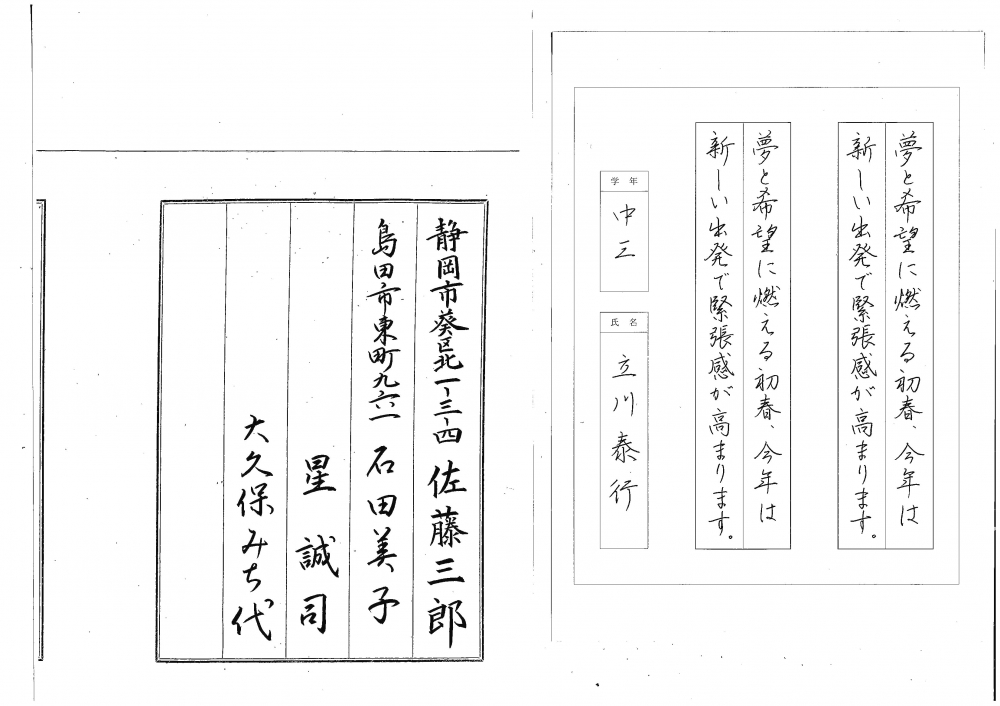 夢と希望に燃える初春、今年は
新しい出発で緊張感が高まります。
夢と希望に燃える初春、今年は
新しい出発で緊張感が高まります。
学年
中三
氏名
立川泰行
静岡市葵区北一-三-四 佐藤三郎
島田市東町九六一 石田美子
星誠司
大久保みち代